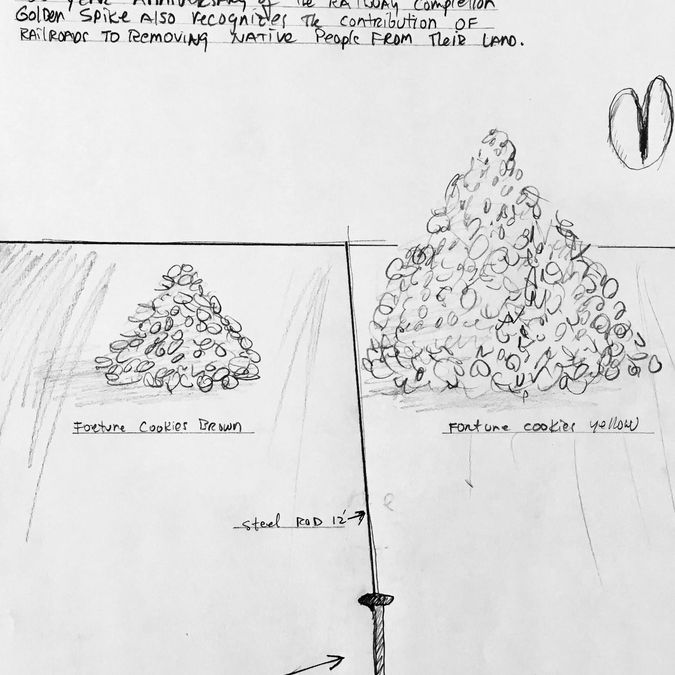 YEAR ANNIVERSARY OF THE RAILWAY COMPLETION
GOLDEN SPIKE ALSO RECOGNIZES THE CONTRIBUTION OF
RAILROADS TO REMOVING NATIVE PEOPLE FROM THEIR LAND.
FORTUNE COOKIES BROWN
FORTUNE COOKIES YELLOW
STEEL ROD 12'